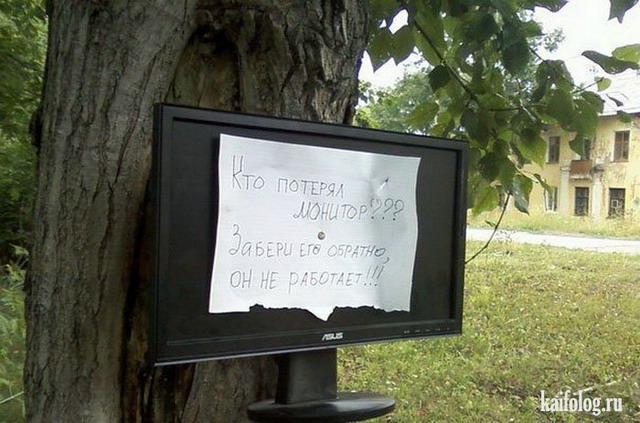 Кто потерял
монитор???
Забери его обратно,
он не работает!!!
ASUS
kaifolog.ru